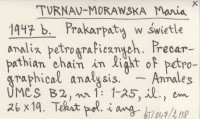 TURNAU-MORAWSKA Maria
1947 b. Prakarpaty w świetle
analiz petrograficznych. Precar-
pathian chain in light of petro-
graphical analysis. — Annales
UMCS B2, nr 1: 1-25, il., cm
26 x 19. Tekst pol. i ang.